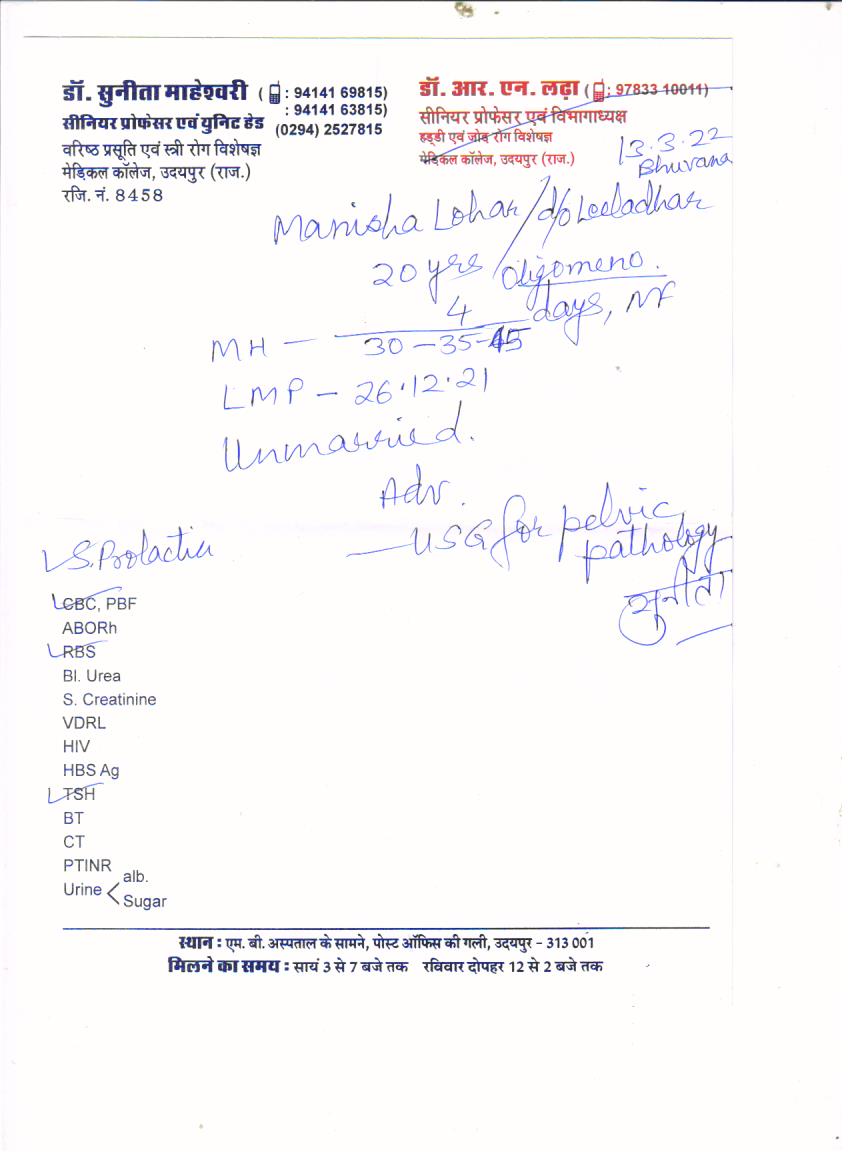 डॉ. सुनीता माहेश्वरी ( : 94141 69815)
: 94141 63815)
सीनियर प्रोफेसर एवं युनिट हेड (0294) 2527815
वरिष्ठ प्रसूति एवं स्त्री रोग विशेषज्ञ
मेडिकल कॉलेज, उदयपुर (राज.)
रजि. नं. 8458
डॉ. आर. एन. लढ़ा ( : 97833 10011)
सीनियर प्रोफेसर एवं विभागाध्यक्ष
हड्डी एवं जोड़ रोग विशेषज्ञ
मेडिकल कॉलेज, उदयपुर (राज.)
13.3.22
Bhuvana
Manisha Lohar / d/o Leeladhar
20 yrs / Oligomeno.
4 days, NF
MH — 30 - 35 - 45
LMP - 26.12.21
Unmarried.
Adv.
— USG for pelvic
pathology
सुनीता
S. Prolactin
CBC, PBF
ABORh
RBS
Bl. Urea
S. Creatinine
VDRL
HIV
HBS Ag
TSH
BT
CT
PTINR
Urine < alb.
Sugar
स्थान : एम. बी. अस्पताल के सामने, पोस्ट ऑफिस की गली, उदयपुर - 313 001
मिलने का समय : सायं 3 से 7 बजे तक रविवार दोपहर 12 से 2 बजे तक